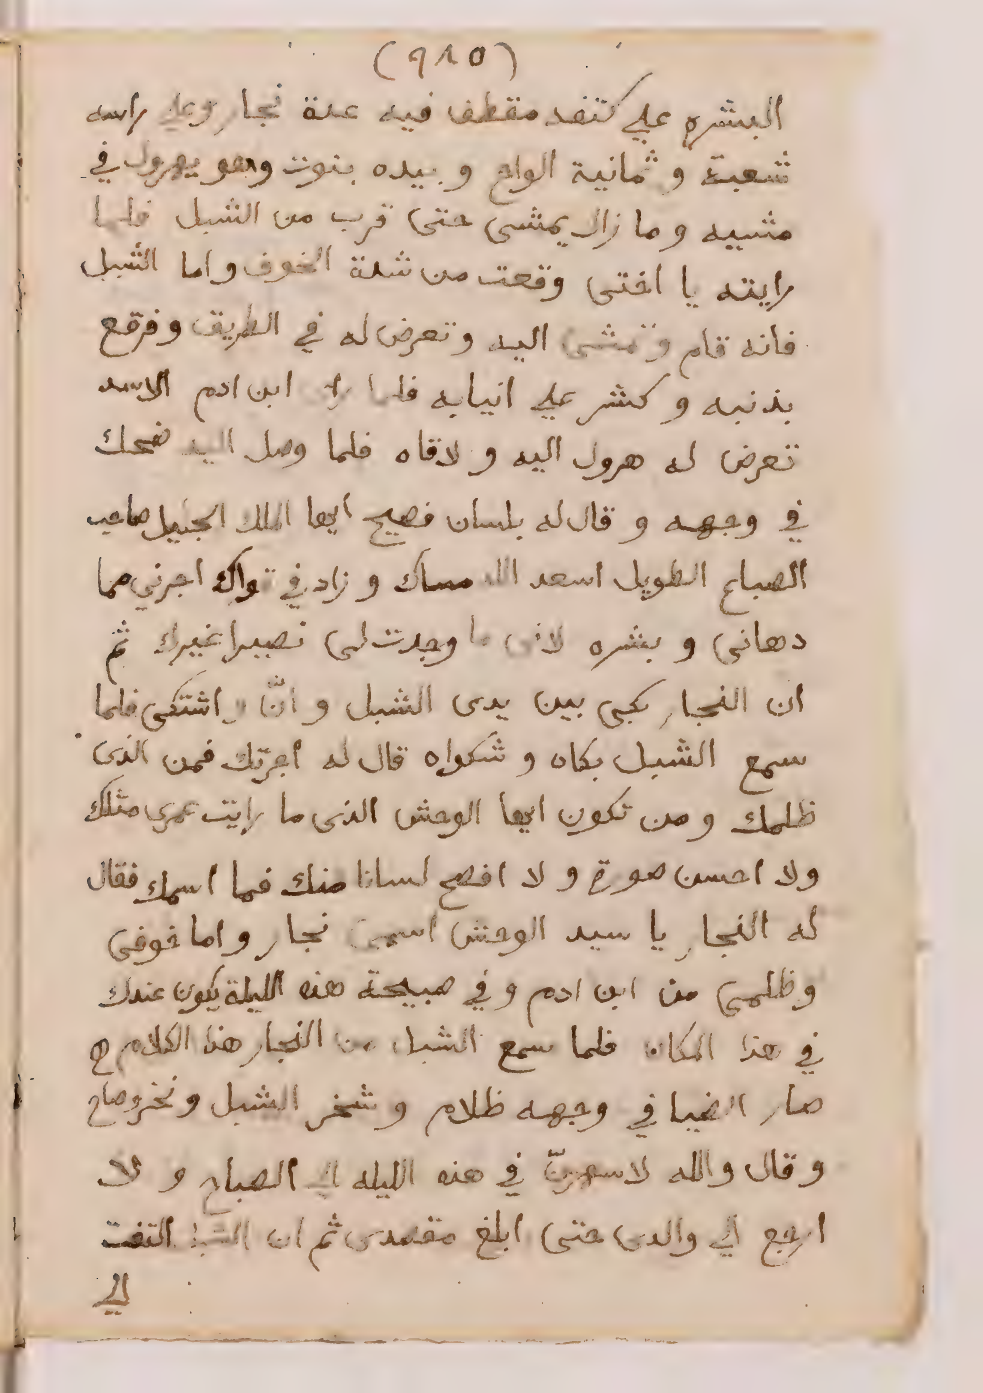 (٩٨٥)
البشره علي كتفه مقطف فيه عدة نجار وعلي راسه
شعبة و ثمانية الواح و بيده بنوت وهو يهرول في
مشييه و ما زال يمشى حتى قرب من الشبل فلما
رايته يا اختى وقعت من شدة الخوف واما الشبل
فانه قام وتمشى اليه وتعرض له في الطريق وفرقع
بذنبه و كشر علي انيابه فلما راى ابن ادم الاسد
تعرض له هرول اليه و لاقاه فلما وصل اليه ضحك
في وجهه و قال له بلسان فصيح ايها الملك الجليل صاحب
الصباع الطويل اسعد الله مساك و زاد في قواك اجرني مما
دهانى و بشره لانى ما وجدت لى نصيرا غيرك ثم
ان النجار بكى بين يدى الشبل و انّ و اشتكى فلما
سمع الشبل بكاه و شكواه قال له اجرتك فمن الذى
ظلمك ومن تكون ايها الوحش الذى ما رايت عمرى مثلك
ولا احسن صورة و لا افصح لسانا منك فما اسمك فقال
له النجار يا سيد الوحش اسمى نجار واما خوفى
وظلمى من ابن ادم وفي صبيحة هذه الليلة يكون عندك
في هذا المكان فلما سمع الشبل من النجار هذا الكلام
صار الضيا في وجهه ظلام و شخر الشبل ونخر وصاح
وقال والله لاسهرنّ في هذه الليله الي الصباح و لا
ارجع الي والدى حتى ابلغ مقصدى ثم ان الشبل التفت
الي